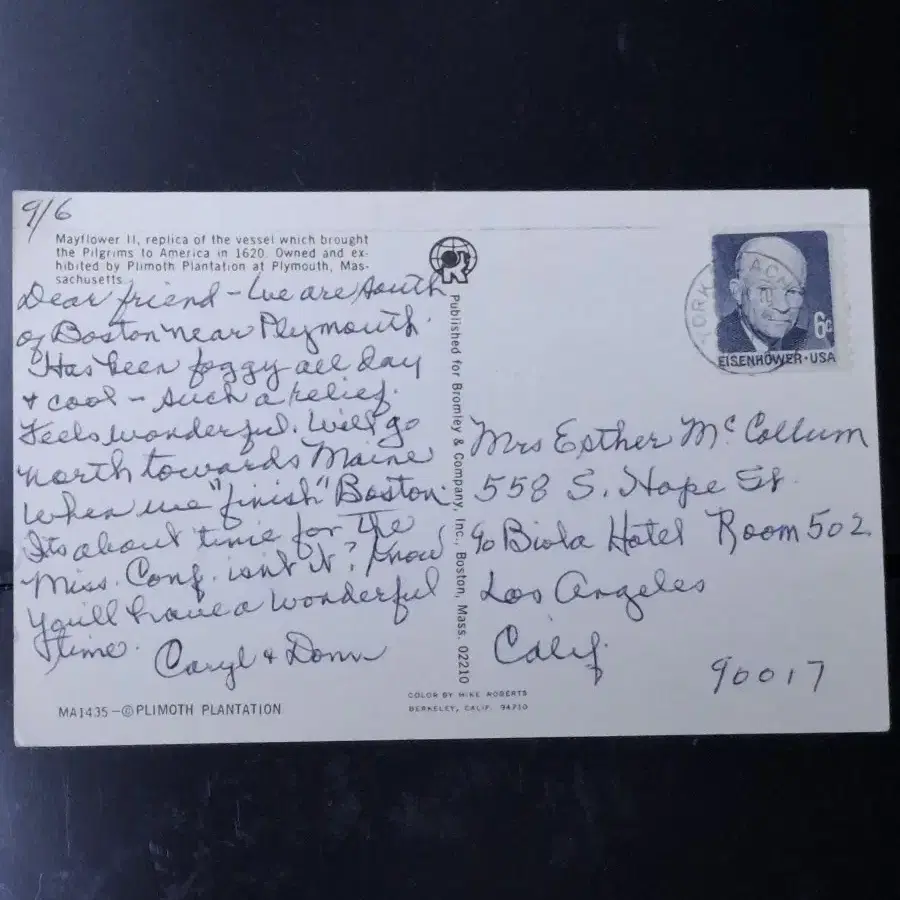 9/6
Mayflower II, replica of the vessel which brought
the Pilgrims to America in 1620. Owned and ex-
hibited by Plimoth Plantation at Plymouth, Mas-
sachusetts.
Dear friend - We are south
of Boston near Plymouth.
Has been foggy all day
& cool - such a relief.
Feels wonderful. Will go
north towards Maine
when we "finish" Boston.
Its about time for the
Miss. Conf. isnt it? Know
you'll have a wonderful
time.
Caryl & Donn
MA1435-©PLIMOTH PLANTATION
Published for Bromley & Company, Inc., Boston, Mass. 02210
COLOR BY MIKE ROBERTS
BERKELEY, CALIF. 94710
6c
EISENHOWER·USA
Mrs Esther McCollum
558 S. Hope St.
c/o Biola Hotel Room 502
Los Angeles
Calif.
90017